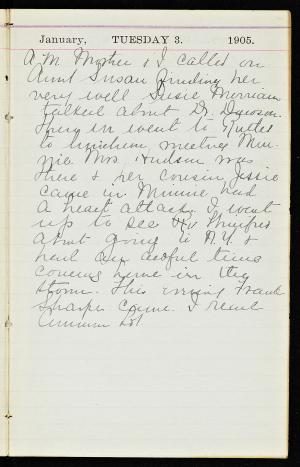 January, TUESDAY 3. 1905.
A.M. Mother & I called on
Aunt Susan finding her
very well Susie Merriam
talked about Dr. Dawson.
Then went to
to luncheon, meeting Min-
nie Mrs. Hudson was
there & her cousin Jessie
came in Minnie had
a heart attack. I went
up to see Winifred
about going to N.Y. &
had an awful time
coming home in the
storm. This evening Frank
Sharpe came. I read